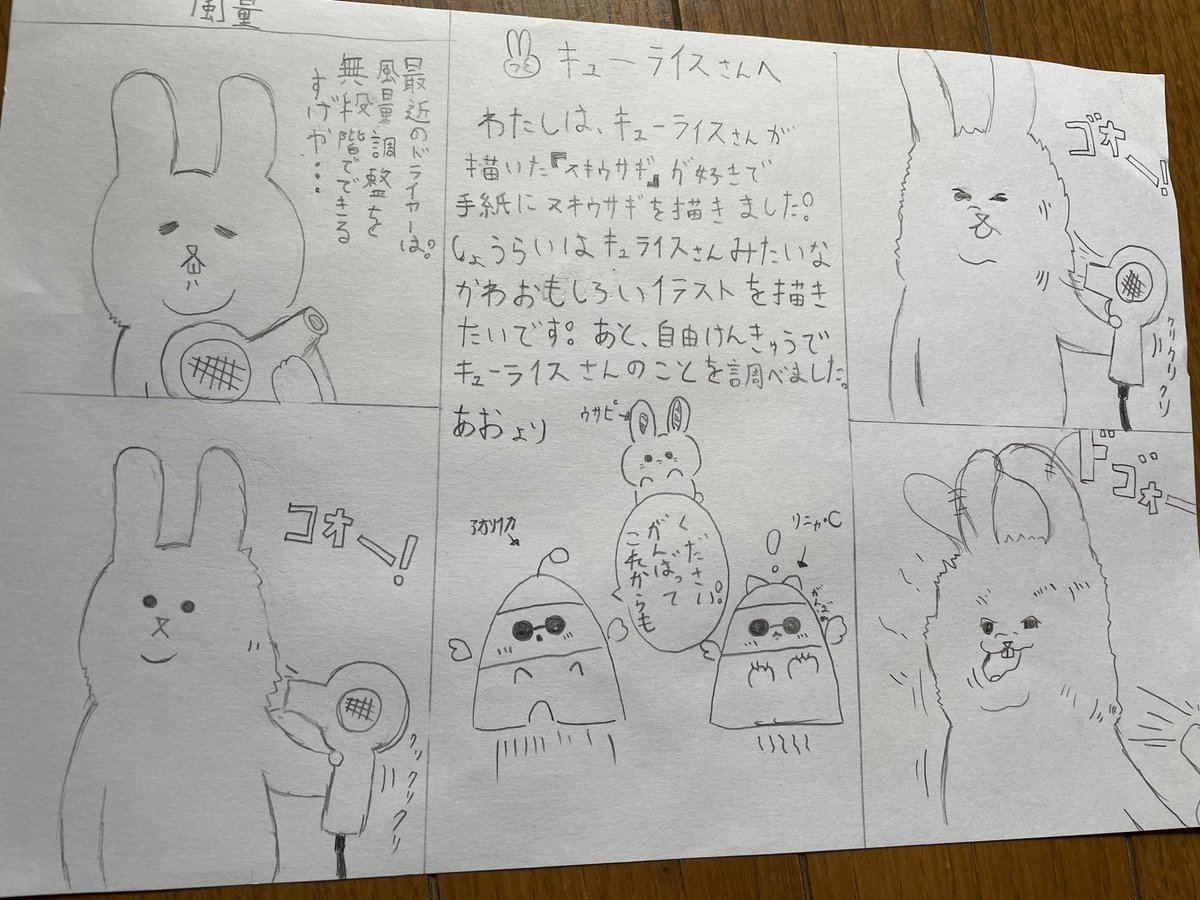 風量
最近のドライヤーは。
風量調整を
無段階でできる
すげや...
コォー!
クリクリクリ
キューライスさんへ
わたしは、キューライスさんが
描いた『スキウサギ』が好きで
手紙にスキウサギを描きました。
しょうらいはキュライスさんみたいな
かわおもしろいイラストを描き
たいです。あと、自由けんきゅうで
キューライスさんのことを調べました。
あおより
ウサピ
これからも
がんばって
ください。
ゴォー!
クリクリクリクリ
ドゴォー